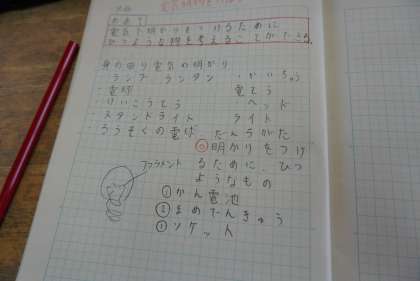 めあて
電気で明かりをつけるために
ひつような物を考えることができる。
身の回り電気の明かり
ランプ ランタン ・かい中
・電球 電とう
・けいこうとう ヘッド
・スタンドライト ライト
ろうそくの電球 たんらがた
明かりをつけ
るために、ひつ
ようなもの
フィラメント
①かん電池
②まめでんきゅう
③ソケット